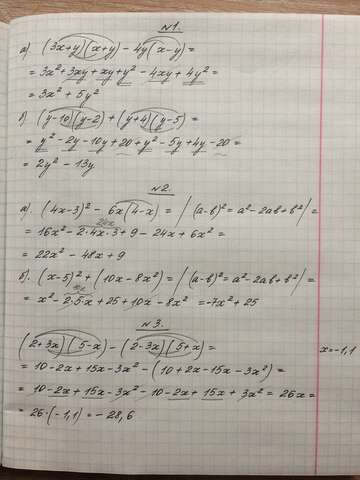 №1.
а) (3x+y)(x+y) - 4y(x-y) =
= 3x² + 3xy + xy + y² - 4xy + 4y² =
= 3x² + 5y²
б) (y-10)(y-2) + (y+4)(y-5) =
= y² - 2y - 10y + 20 + y² - 5y + 4y - 20 =
= 2y² - 13y
№2.
а) (4x-3)² - 6x(4-x) = |(a-b)² = a² - 2ab + b²| =
24x
= 16x² - 2·4x·3 + 9 - 24x + 6x² =
= 22x² - 48x + 9
б) (x-5)² + (10x - 8x²) = |(a-b)² = a² - 2ab + b²| =
= x² - 2·5·x + 25 + 10x - 8x² = -7x² + 25
№3.
(2+3x)(5-x) - (2-3x)(5+x) = x = -1,1
= 10 - 2x + 15x - 3x² - (10 + 2x - 15x - 3x²) =
= 10 - 2x + 15x - 3x² - 10 - 2x + 15x + 3x² = 26x =
= 26·(-1,1) = -28,6